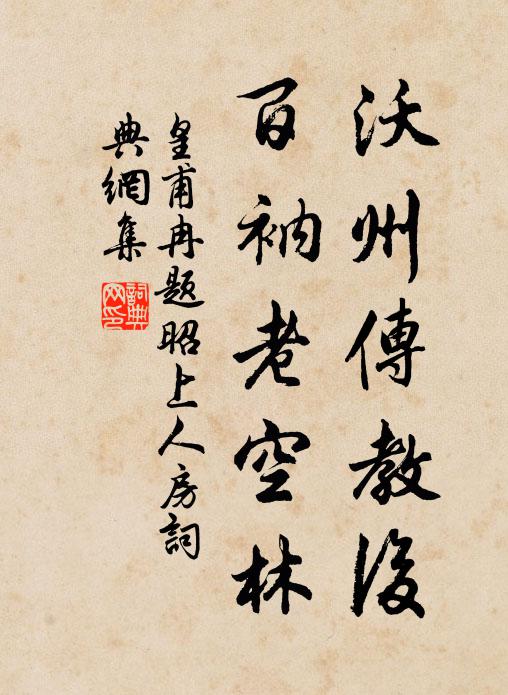 沃州傳教後
百衲老空林
皇甫冉題昭上人房詞
典網集
詞典網印